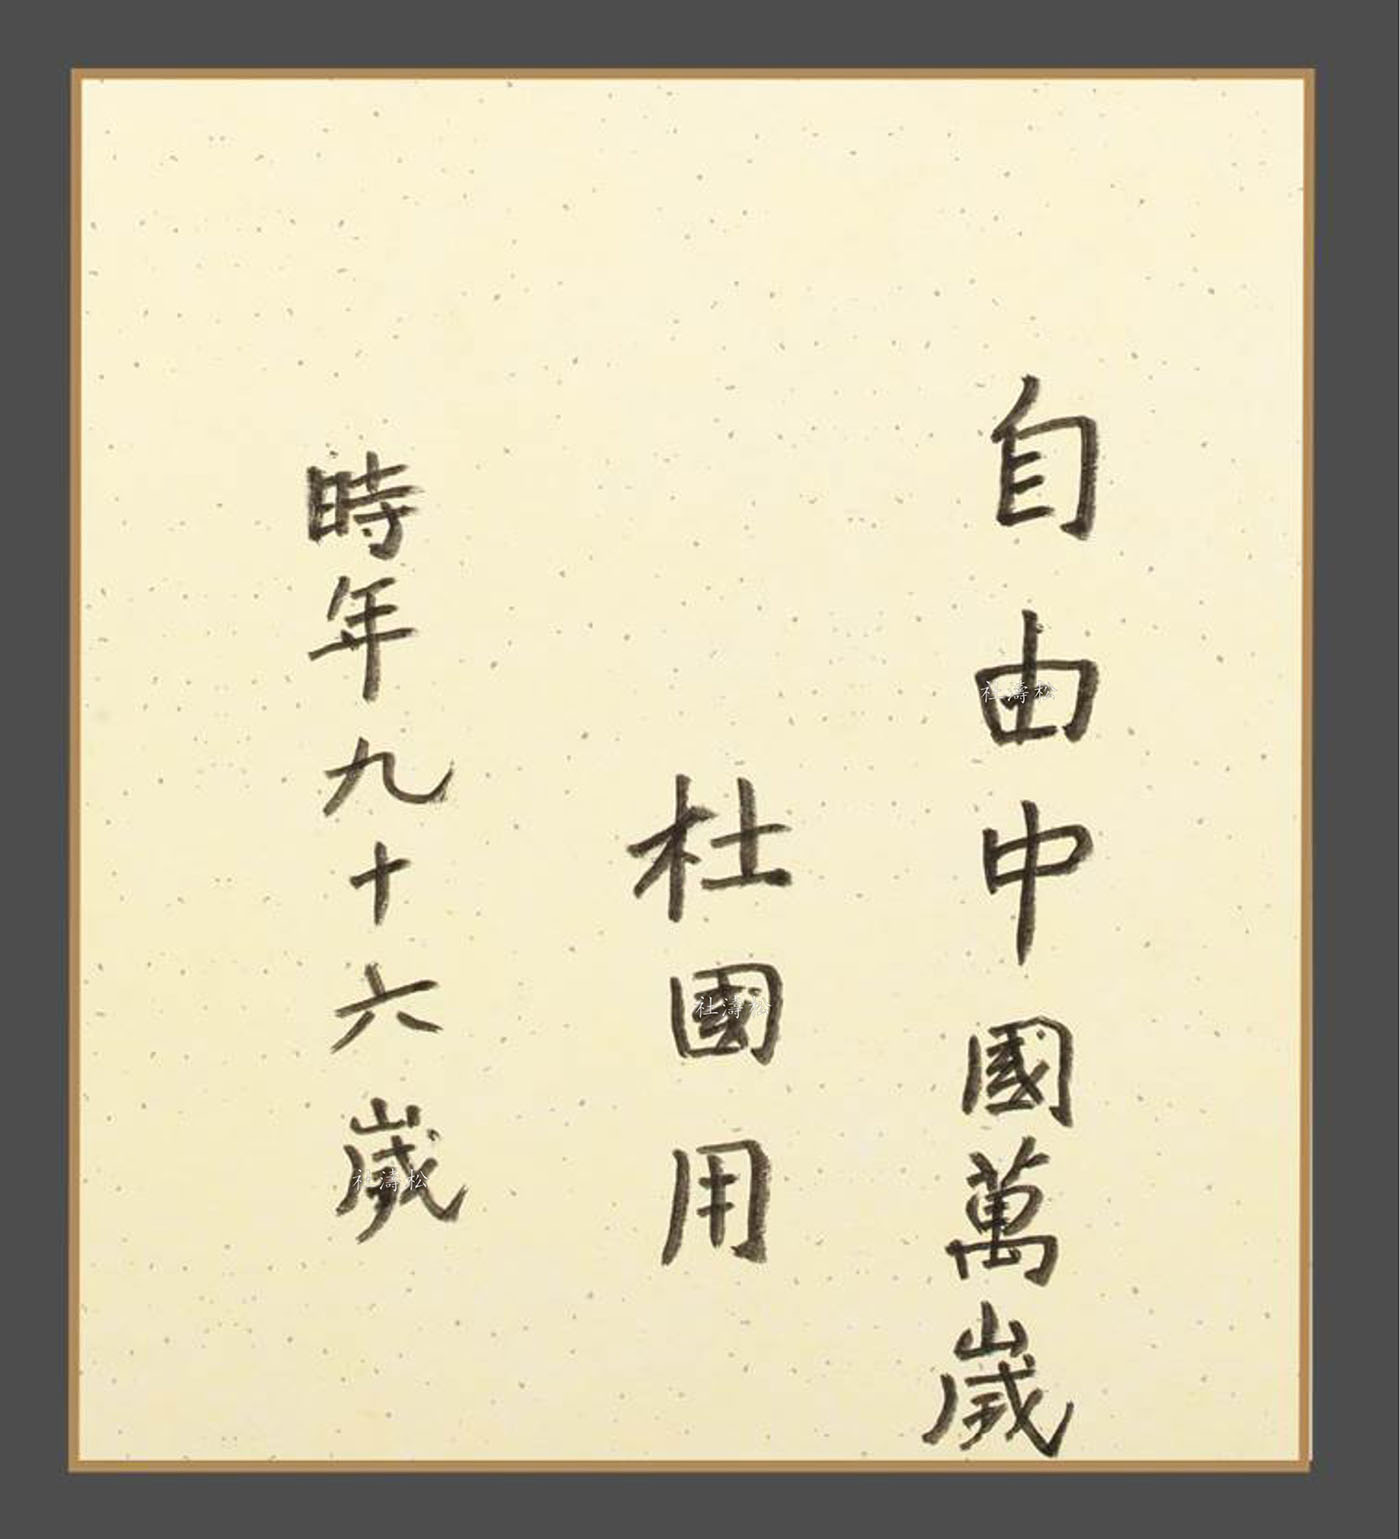 自由中國萬歲
杜國用
時年九十六歲
杜濤松
杜濤松
杜濤松